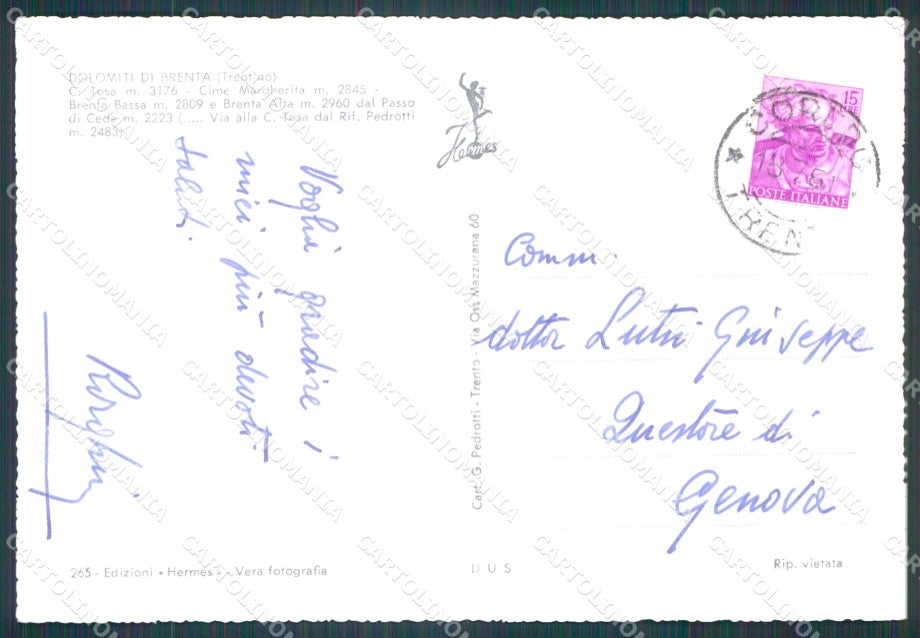 DOLOMITI DI BRENTA (Trentino)
C. Tosa m. 3176 - Cime Margherita m. 2845 -
Brenta Bassa m. 2809 e Brenta Alta m. 2960 dal Passo
di Cede m. 2223 (.... Via alla C. Tosa dal Rif. Pedrotti
m. 2483)
Hermes
15
LIRE
POSTE ITALIANE
TREN
Voglia gradire i
miei più devoti
saluti.
Cart. G. Pedrotti - Trento - Via Oss Mazzurana 60
Comm.
dottor Lutri Giuseppe
Questore di
Genova
265 - Edizioni « Hermes » - Vera fotografia
D U S
Rip. vietata
CARTOLINOMANIA